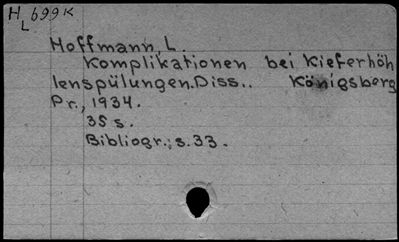 H 699K
L
Hoffmann, L.
Komplikationen bei Kieferhöh
lenspülungen. Diss.. Königsberg
Pr., 1934.
35 s.
Bibliogr.; s. 33.